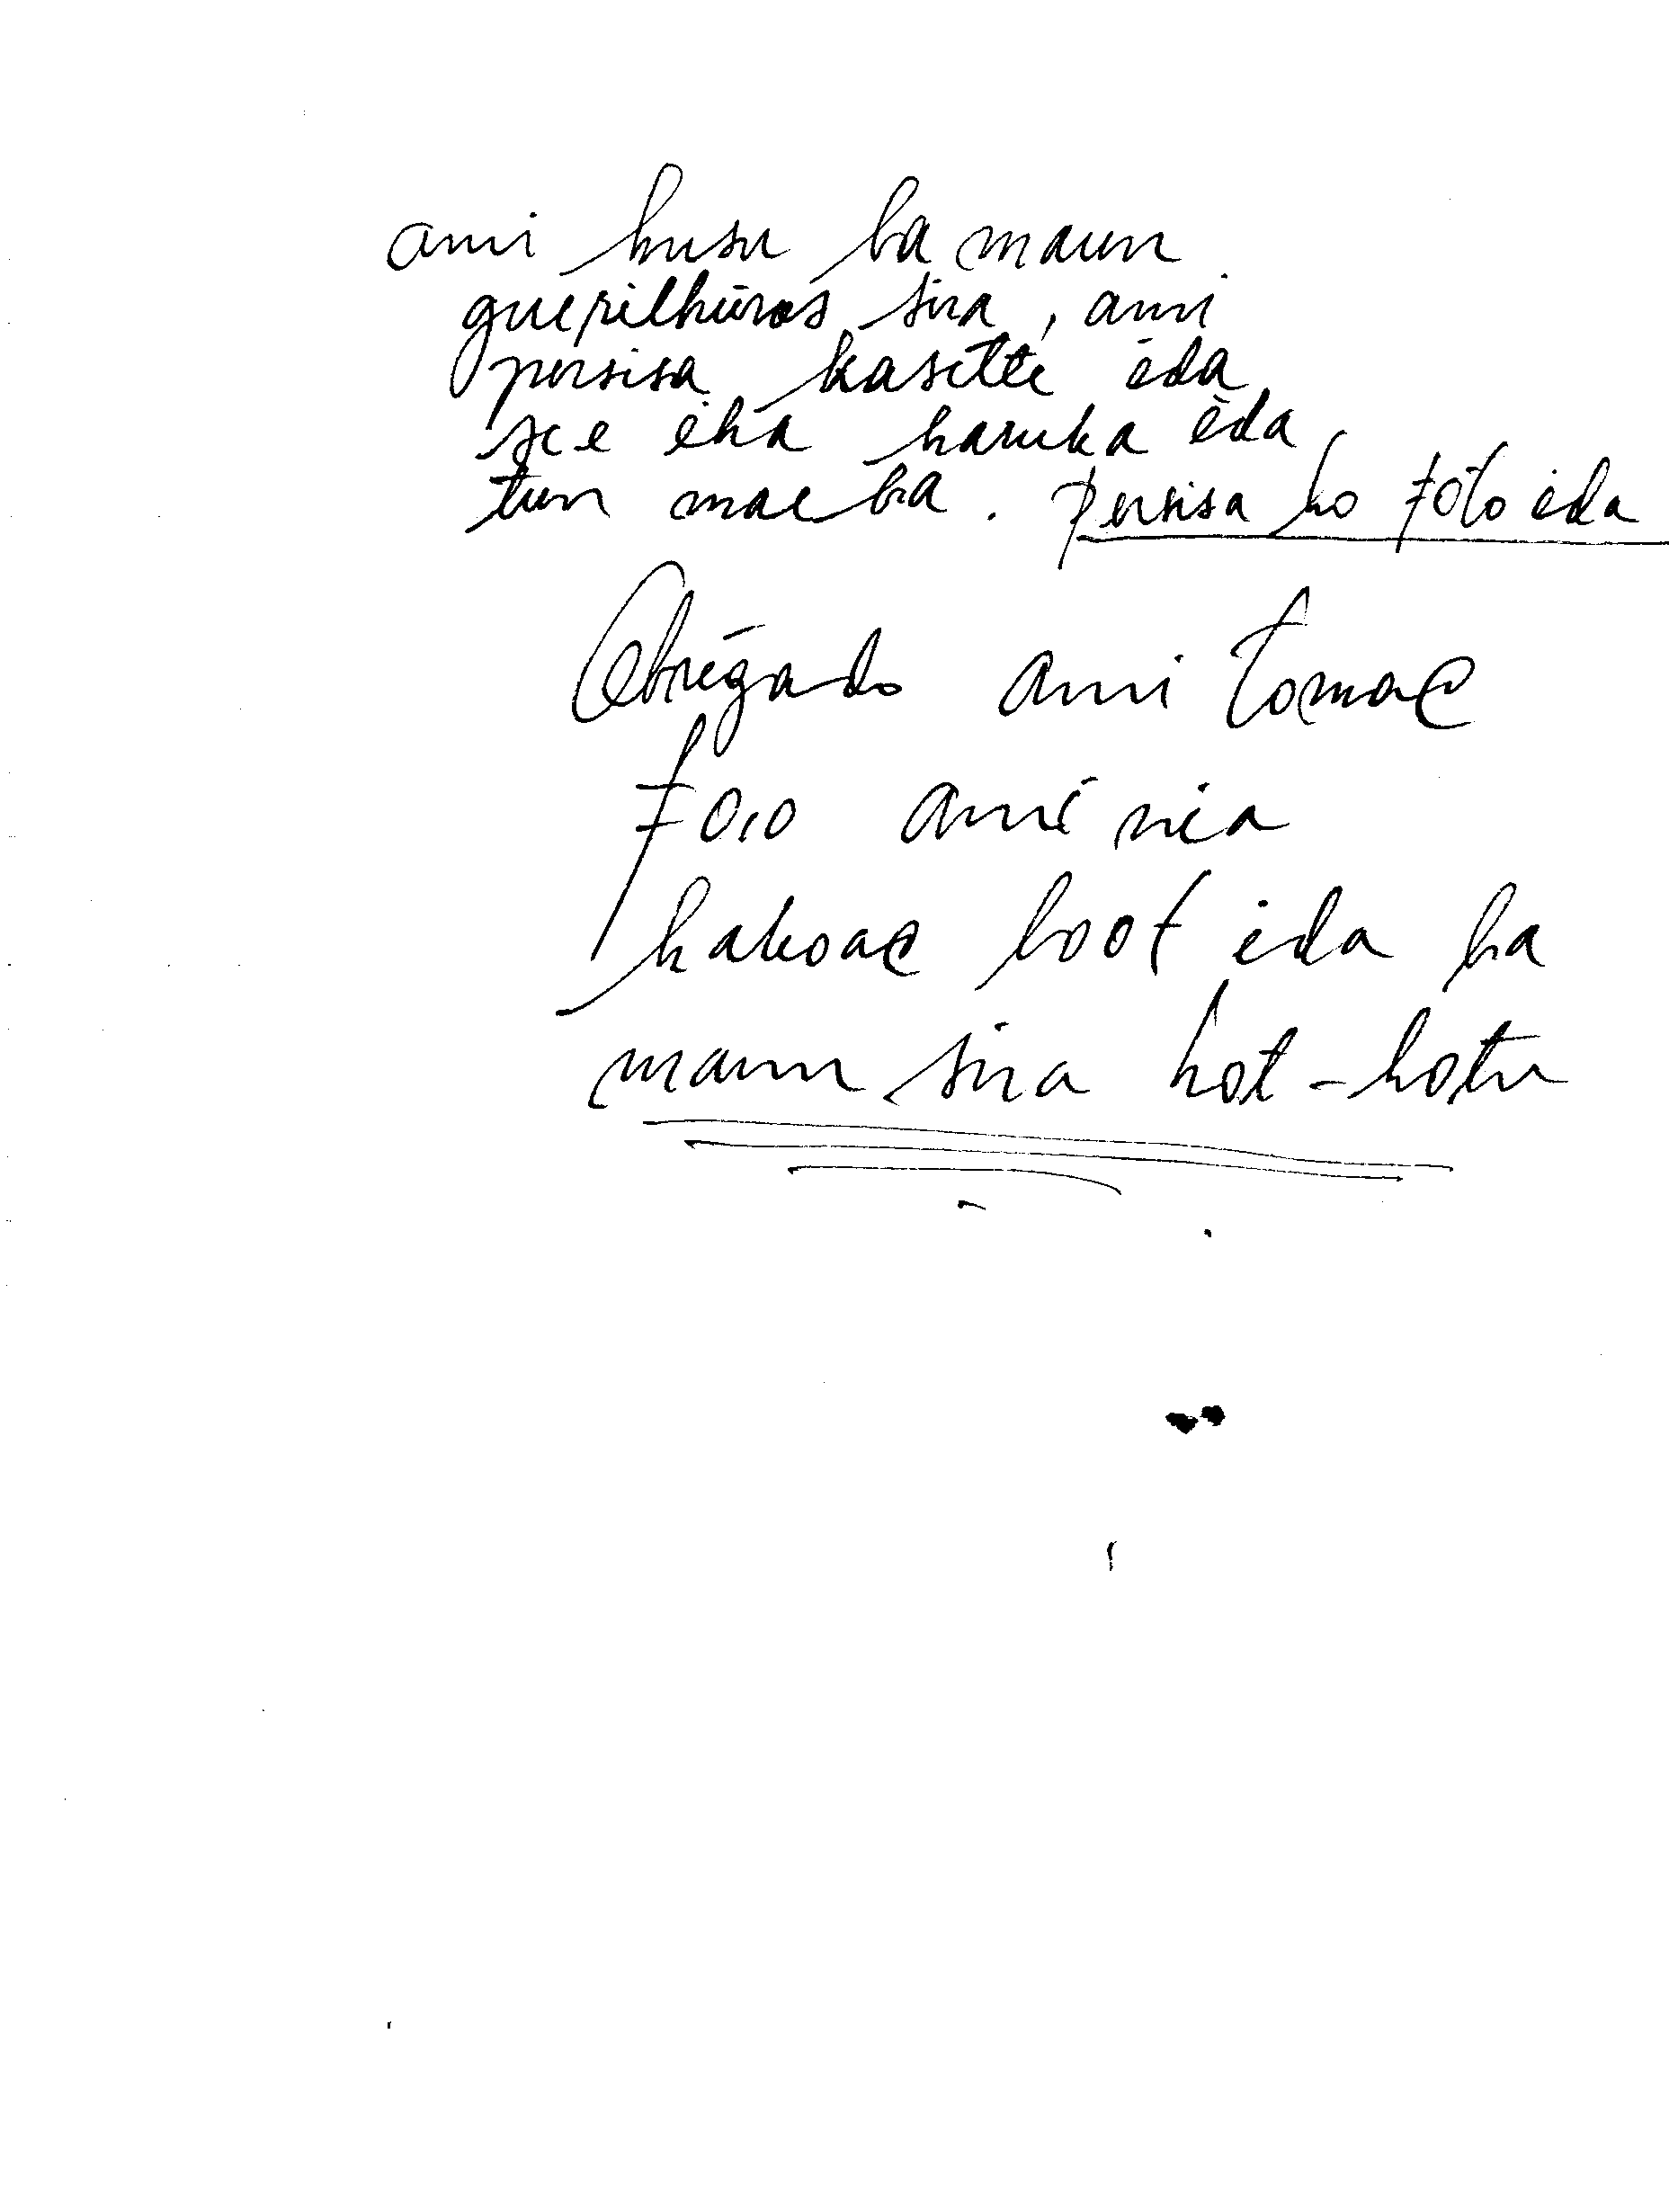 ami husu ba maun
guerilheiros sira, ami
persisa kasette ida
se e iha haruka ida
tun mae ba. persisa ho foto ida
Obrigado ami tomac
Foo ami nia
hakoac boot ida ba
maun sira hot-hotu